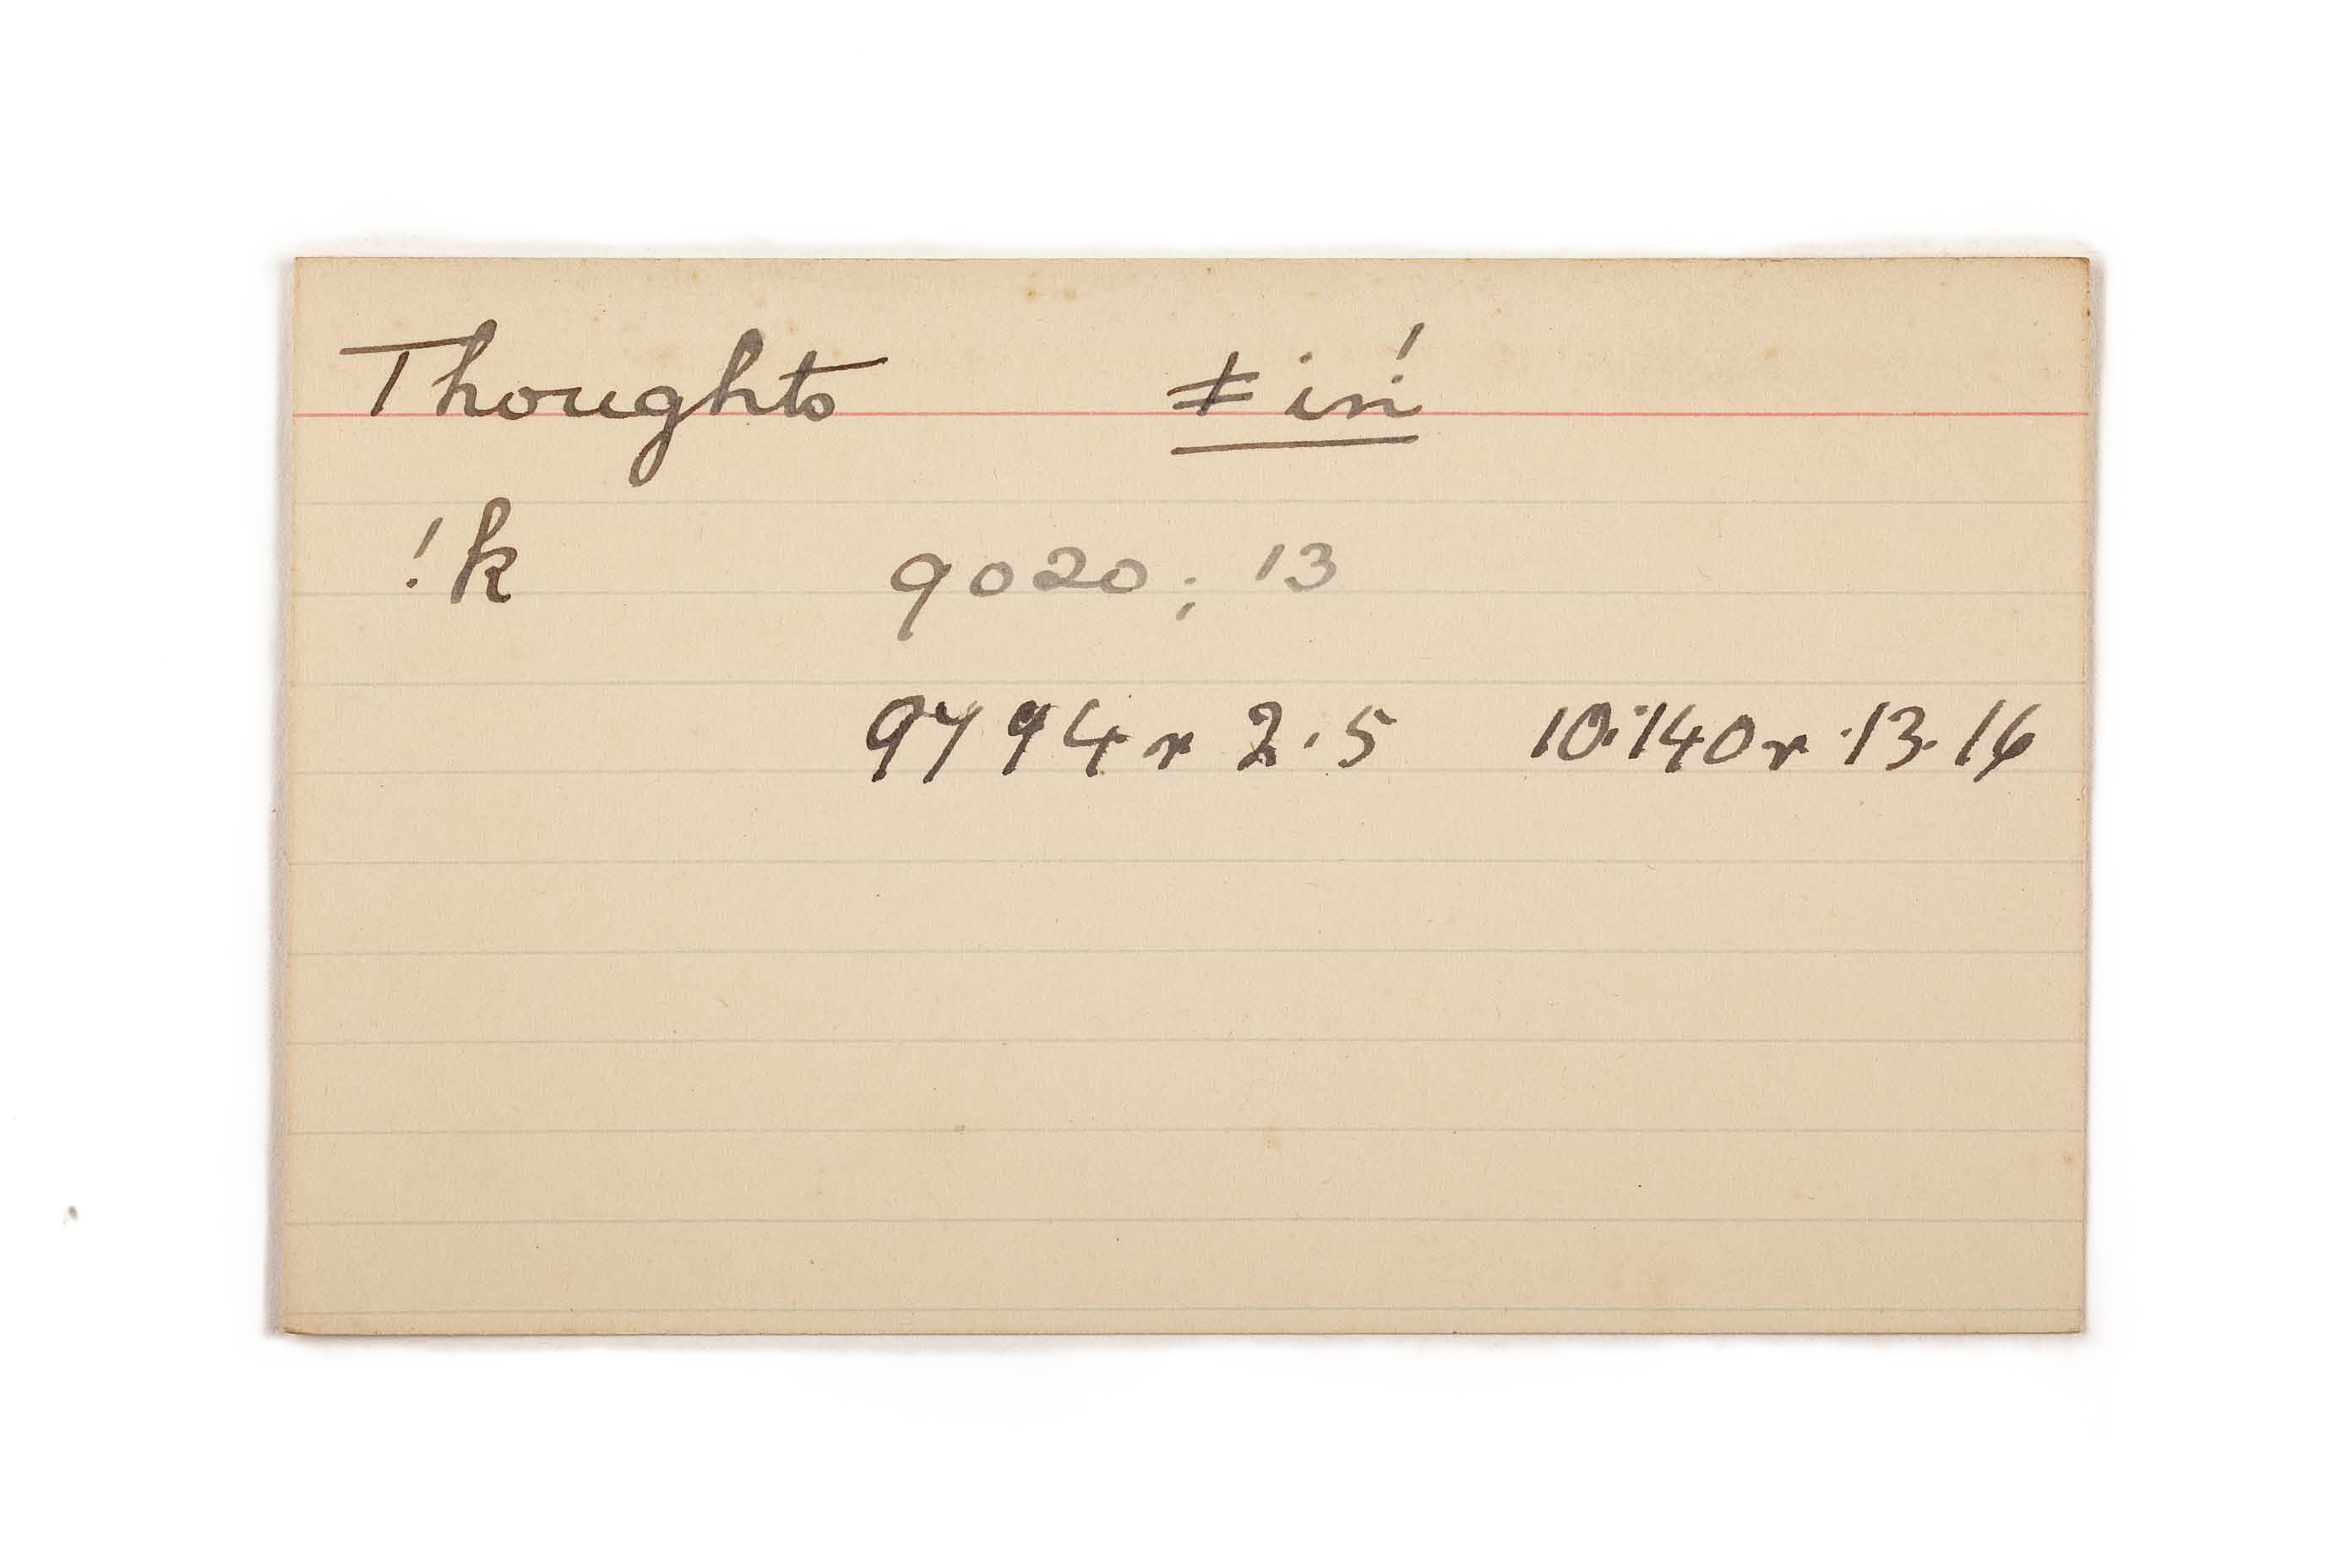 Thoughts ǂiń
!k 9020; 13
9794 r 2.5 10.140 r .13.16